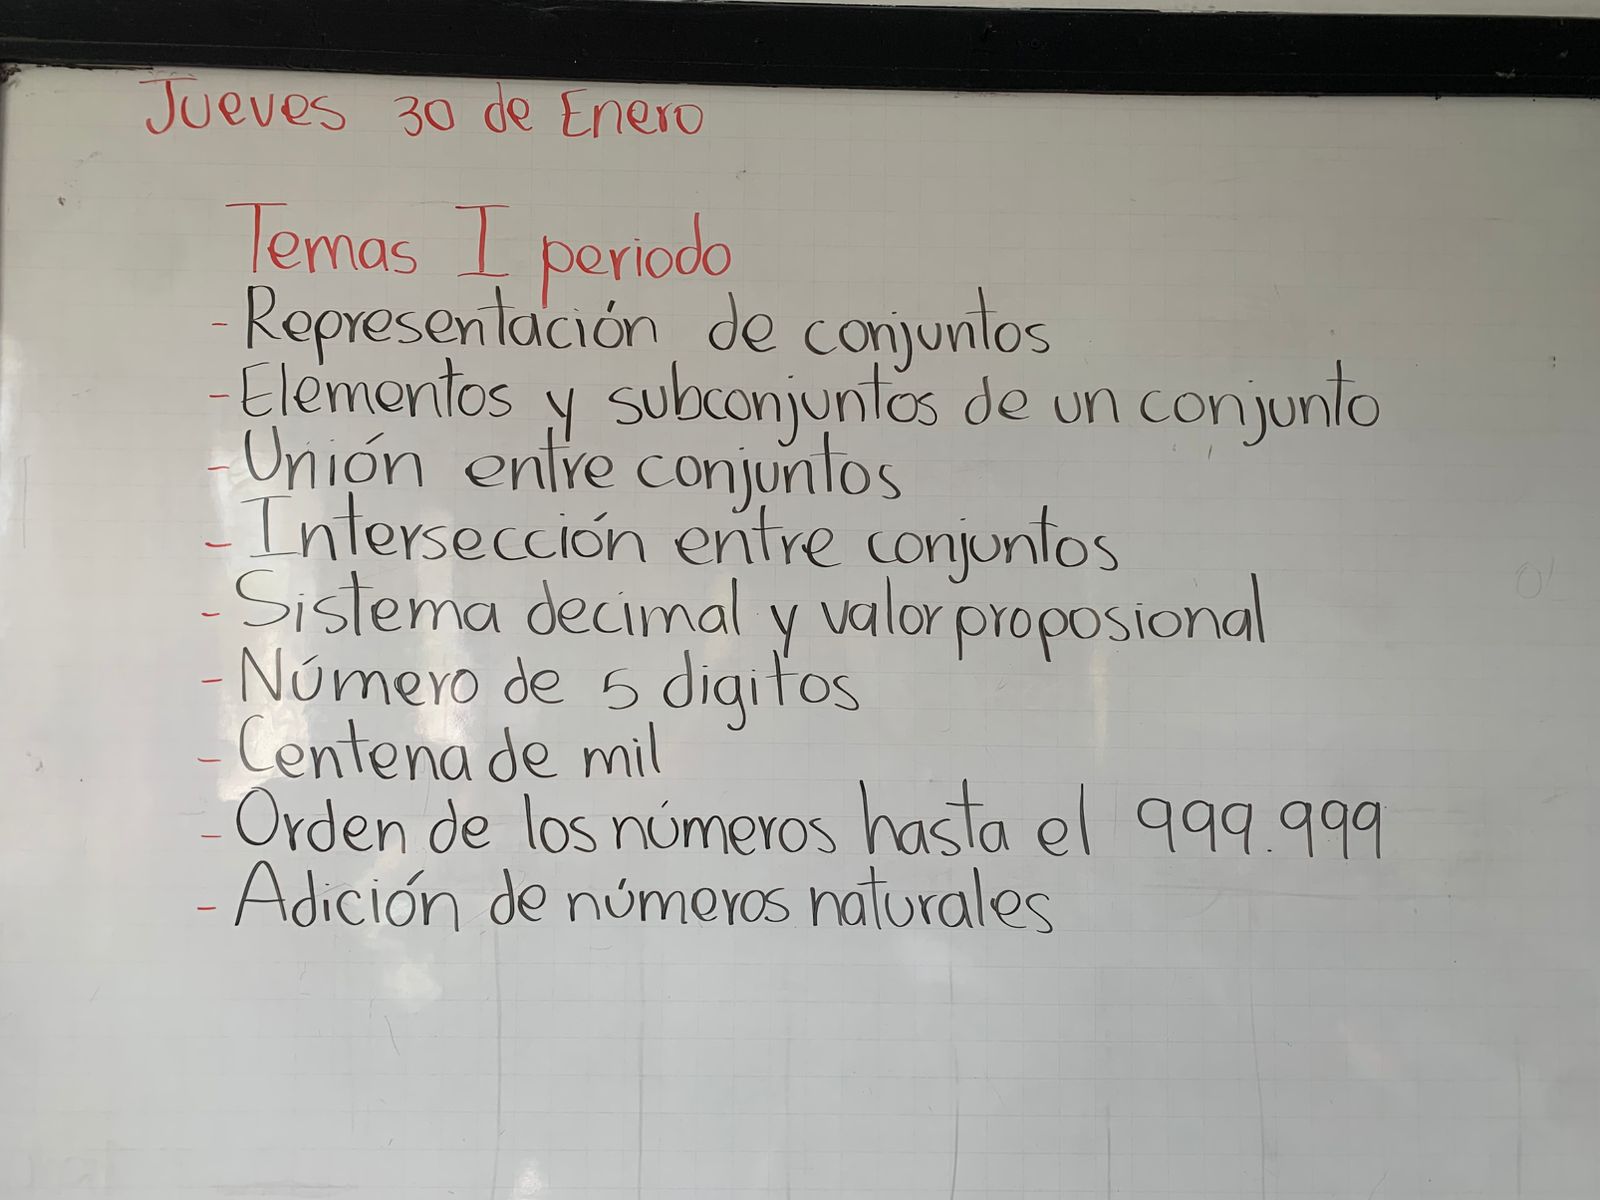 Jueves 30 de Enero
Temas I periodo
- Representación de conjuntos
- Elementos y subconjuntos de un conjunto
- Unión entre conjuntos
- Intersección entre conjuntos
- Sistema decimal y valor proposional
- Número de 5 digitos
- Centena de mil
- Orden de los números hasta el 999.999
- Adición de números naturales